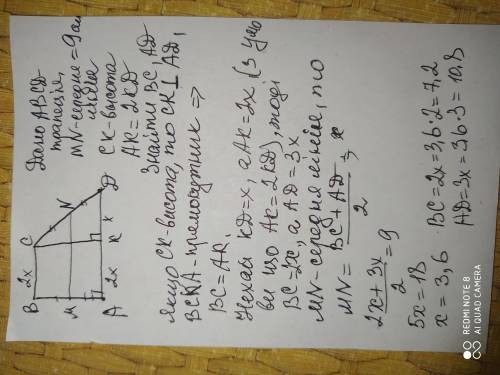 Дано ABCD
трапеція,
MN-середня = 9 см
CK-висота
AK = 2KD
Знайти BC, AD
B 2x C
M N
A 2x K x D
Якщо CK-висота, то CK ⊥ AD,
BCKA-прямокутник ⇒
BC = AK.
Нехай KD = x, а AK = 2x (з умо
ви що AK = 2KD), тоді
BC = 2x, а AD = 3x
MN-середня лінія, то
MN = BC + AD / 2
2x + 3x / 2 = 9
5x = 18
x = 3,6
BC = 2x = 3,6·2 = 7,2
AD = 3x = 3,6·3 = 10,8
REDMI NOTE 8
AI QUAD CAMERA